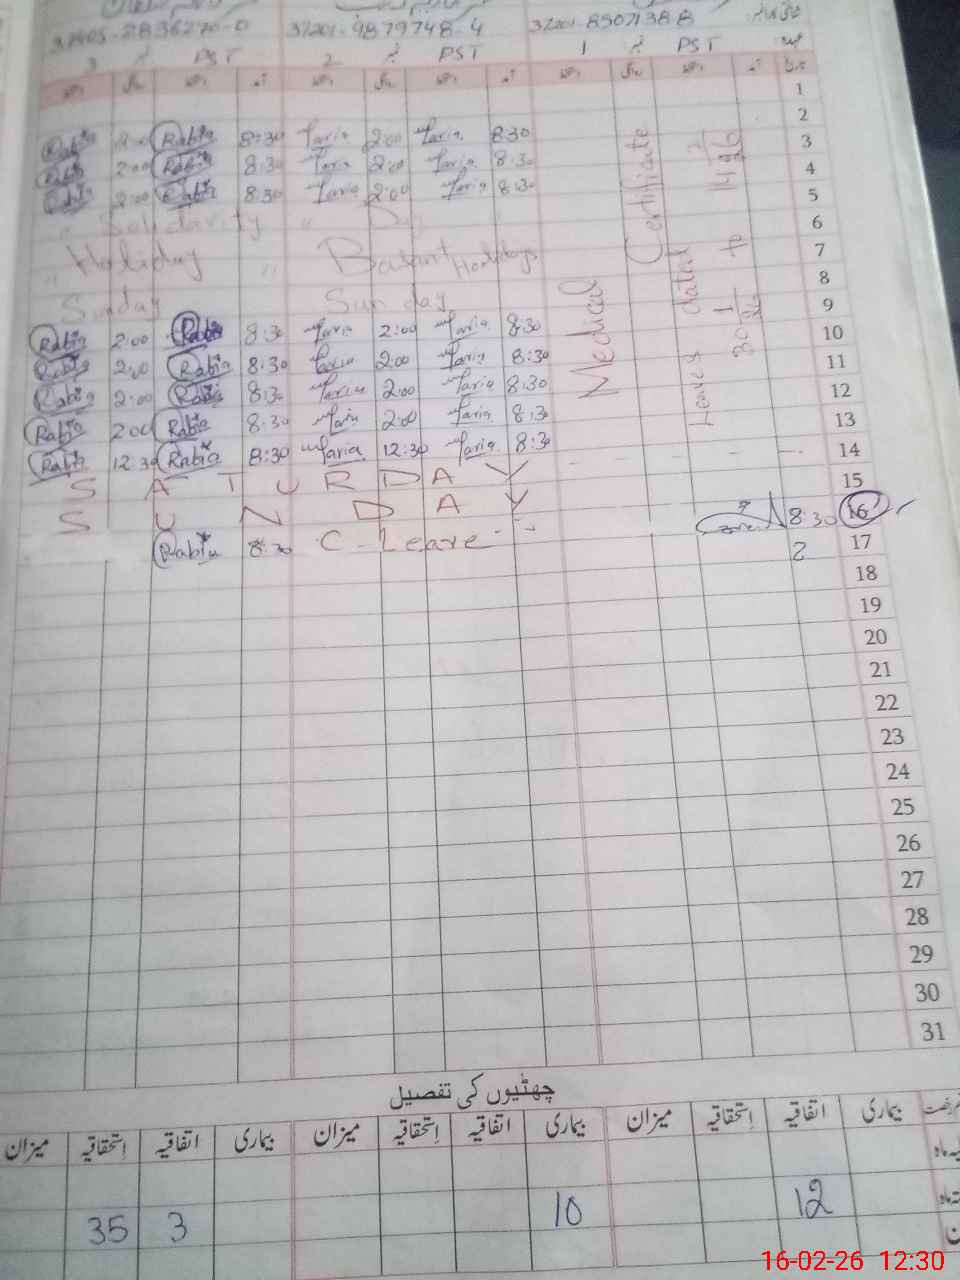 37405-2836270-0 37201-9879748-4 37201-8507138 8
3 PST 2 PST 1 PST
1
2
Rabia 2:00 Rabia 8:30 Maria 2:00 Maria 8:30 3
Rabia 2:00 Rabia 8:30 Maria 2:00 Maria 8:30 4
Rabia 2:00 Rabia 8:30 Maria 2:00 Maria 8:30 5
" Solidarity " Day 6
" Holiday " Basant Holidays 7
Sunday Sunday 8
Rabia 2:00 Rabia 8:30 Maria 2:00 Maria 8:30 9
Rabia 2:00 Rabia 8:30 Maria 2:00 Maria 8:30 10
Rabia 2:00 Rabia 8:30 Maria 2:00 Maria 8:30 11
Rabia 2:00 Rabia 8:30 Maria 2:00 Maria 8:30 12
Rabia 12:30 Rabia 8:30 Maria 12:30 Maria 8:30 13
Medical Certificate
Leaves dated
30 1/26 to 14 2/26
14
S A T U R D A Y 15
S U N D A Y 8:30 16
Rabia 8:30 C-Leave 2 17
18
19
20
21
22
23
24
25
26
27
28
29
30
31
چھٹیوں کی تفصیل
بیماری اتفاقیہ استحقاقیہ میزان بیماری اتفاقیہ استحقاقیہ میزان بیماری اتفاقیہ استحقاقیہ میزان
35 3 10 12
16-02-26 12:30